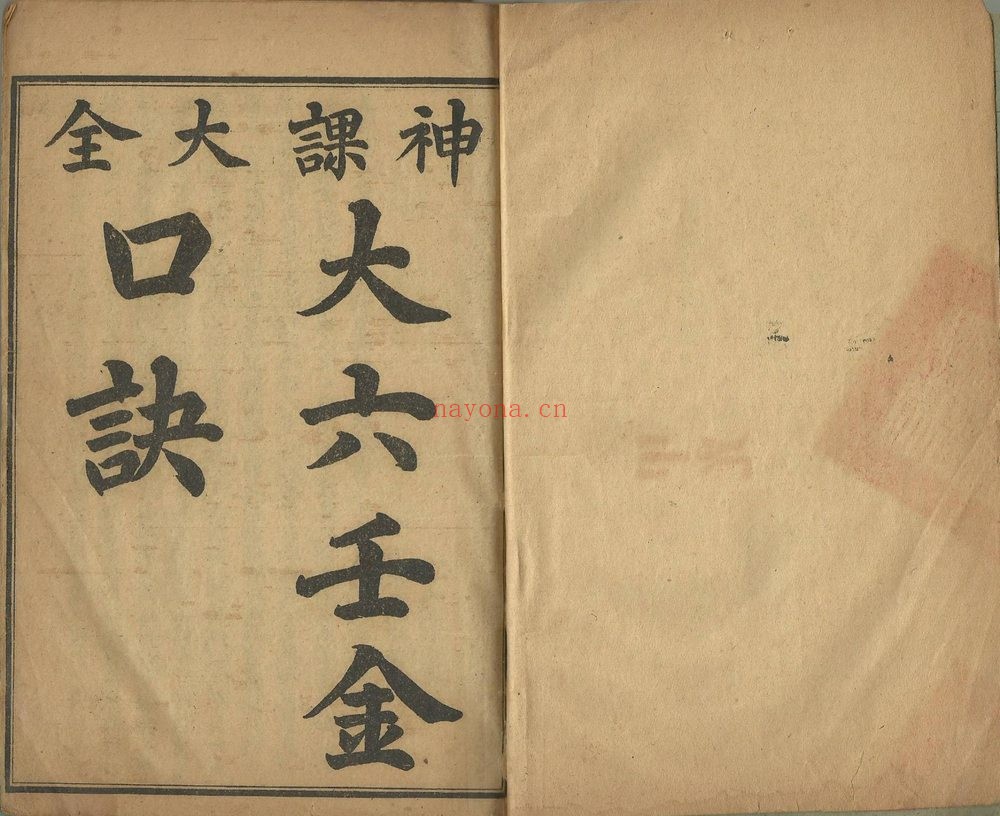 神課大全
大六壬金
口訣
nayona.cn